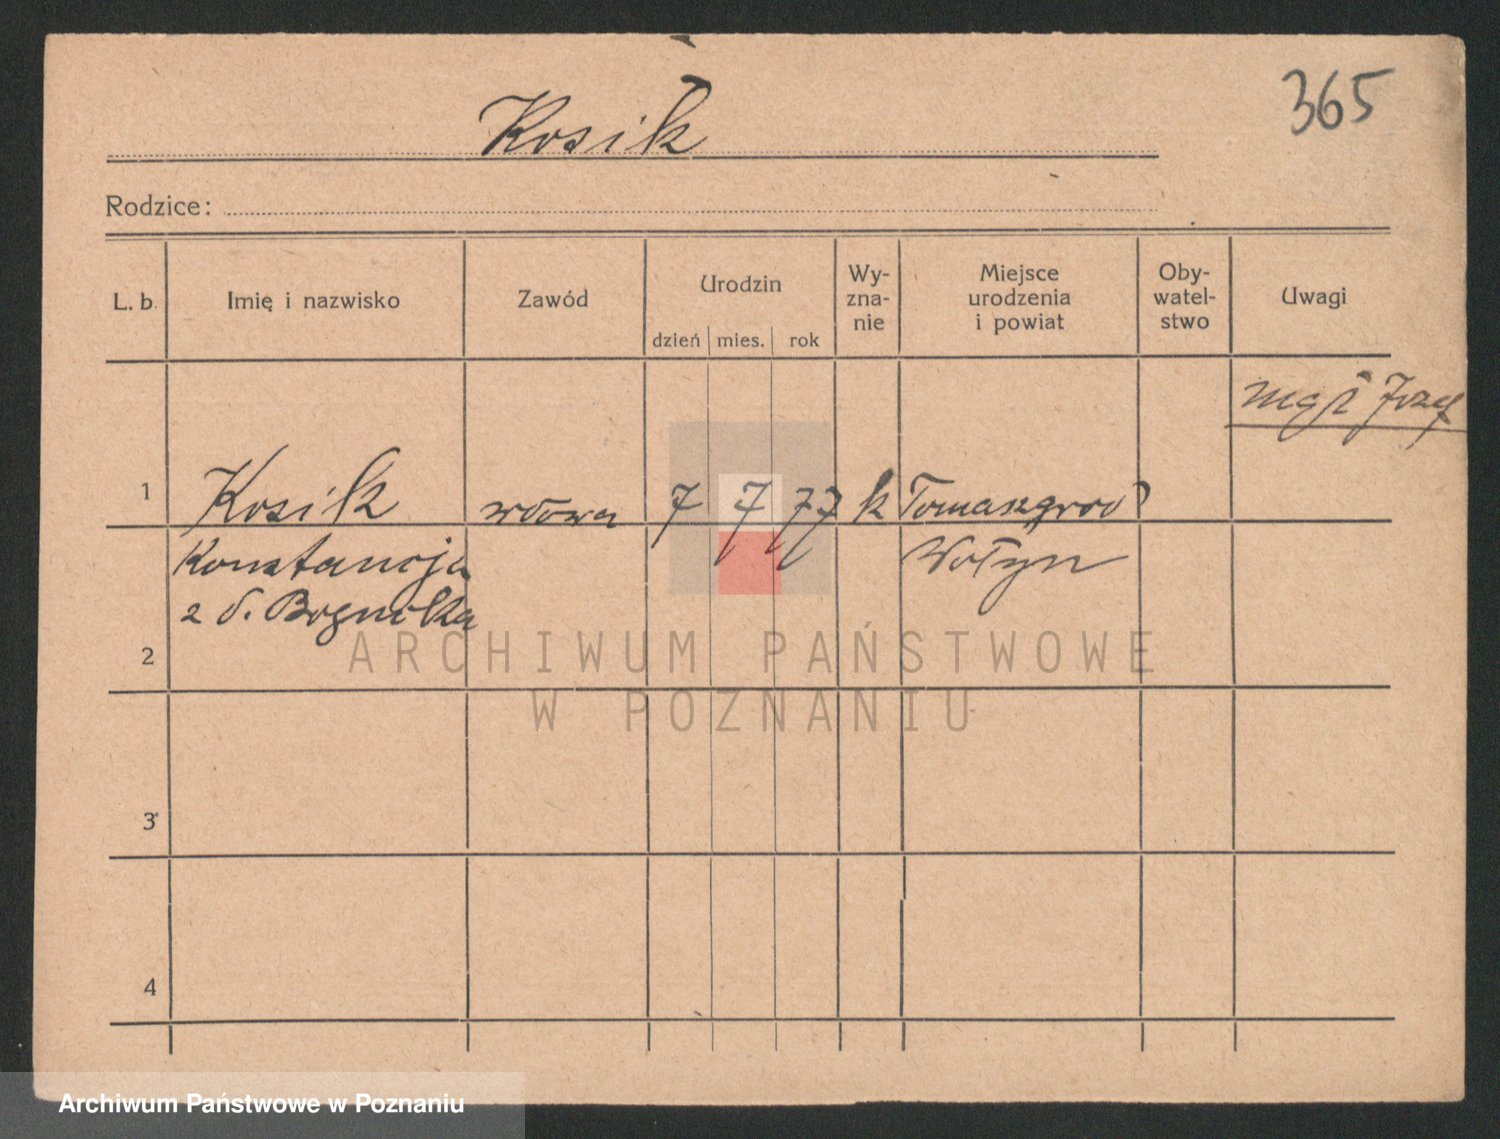 365
Kosik
Rodzice:
L. b. Imię i nazwisko Zawód Urodzin dzień mies. rok Wy-zna-nie Miejsce urodzenia i powiat Oby-watel-stwo Uwagi
Józef
1 Kosik wdowa 7 7 77 k Tomaszgród
Konstancja Wołyn
z d.
2
3
4
ARCHIWUM PAŃSTWOWE
W POZNANIU
Archiwum Państwowe w Poznaniu